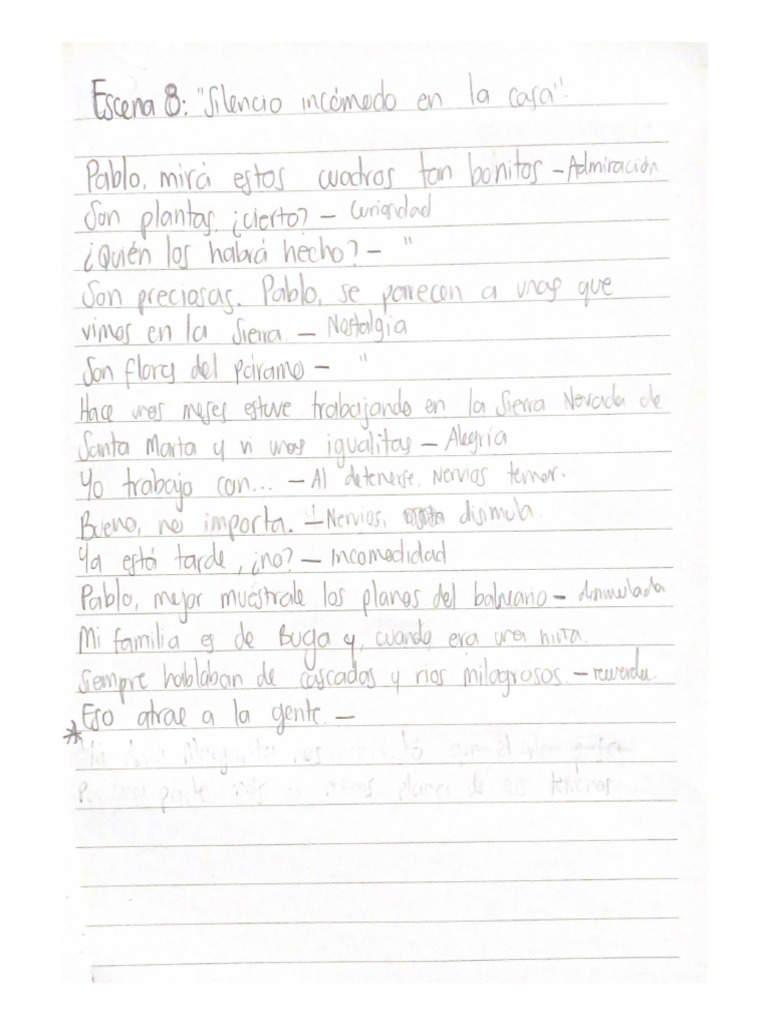 Escena 8: "Silencio incómodo en la casa".
Pablo, mirá estos cuadros tan bonitos - Admiración
Son plantas, ¿cierto? - Curiosidad
¿Quién los habrá hecho? - "
Son preciosas. Pablo, se parecen a unas que
vimos en la Sierra - Nostalgia
Son flores del páramo - "
Hace unos meses estuve trabajando en la Sierra Nevada de
Santa Marta y vi unas igualitas - Alegría
Yo trabajo con... - Al detenerse, Nervios temor.
Bueno, no importa. - Nervios, disimula.
Ya está tarde, ¿no? - Incomodidad
Pablo, mejor muéstrale los planos del balneario - disimulada
Mi familia es de Buga y, cuando era una niña.
Siempre hablaban de cascadas y rios milagrosos - recuerda.
* Eso atrae a la gente. -
planos de terrenos